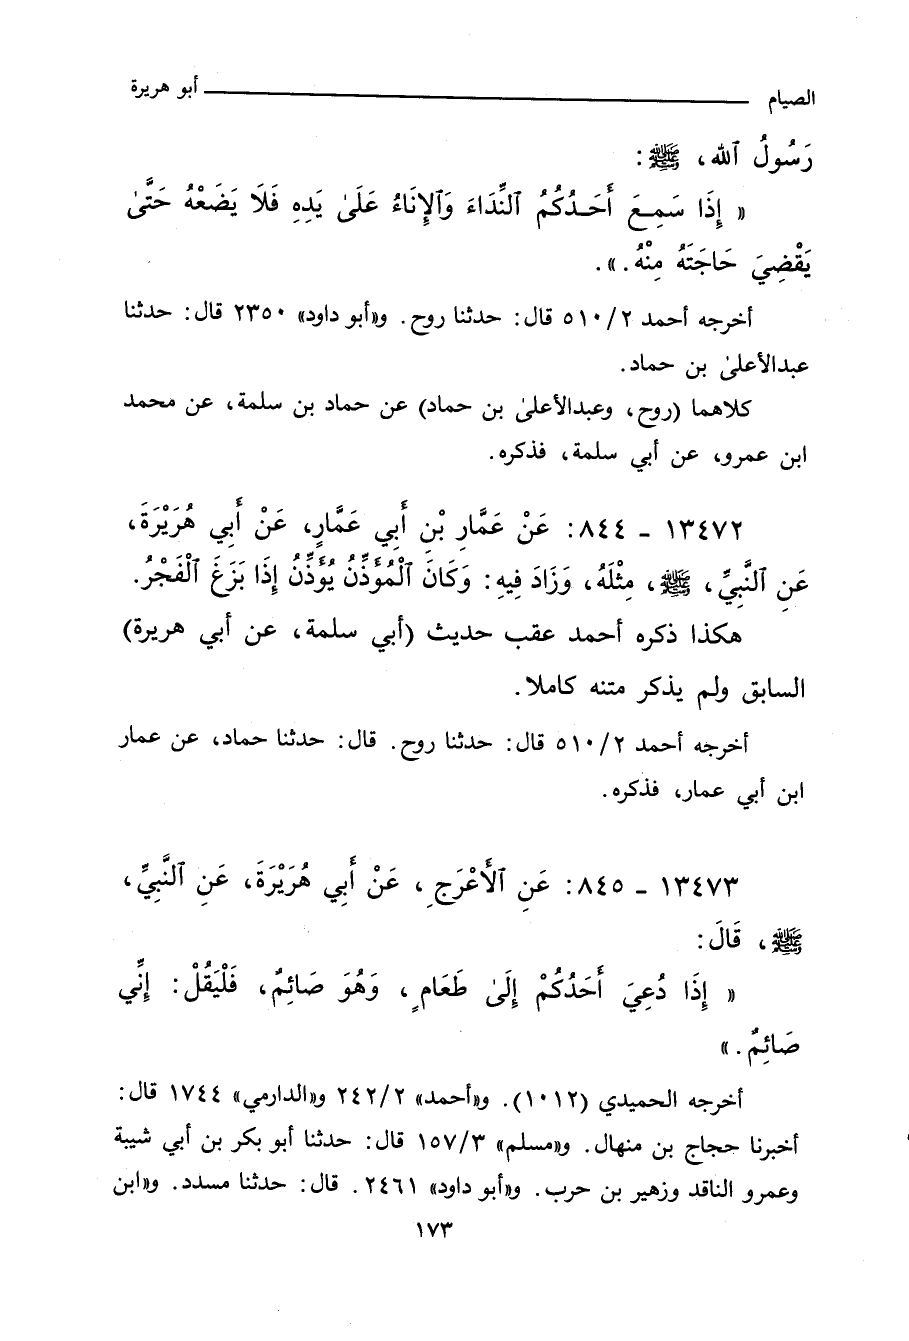 الصيام ــــــــــــ أبو هريرة
رَسُولُ ٱللهِ، ﷺ:
« إِذَا سَمِعَ أَحَدُكُمُ ٱلنِّدَاءَ وَٱلإِنَاءُ عَلَىٰ يَدِهِ فَلَا يَضَعْهُ حَتَّىٰ
يَقْضِيَ حَاجَتَهُ مِنْهُ.».
أخرجه أحمد ٥١٠/٢ قال: حدثنا روح. و«أبو داود» ٢٣٥٠ قال: حدثنا
عبدالأعلىٰ بن حماد.
كلاهما (روح، وعبدالأعلىٰ بن حماد) عن حماد بن سلمة، عن محمد
ابن عمرو، عن أبي سلمة، فذكره.
١٣٤٧٢ ـ ٨٤٤: عَنْ عَمَّارِ بْنِ أَبِي عَمَّارٍ، عَنْ أَبِي هُرَيْرَةَ،
عَنِ ٱلنَّبِيِّ، ﷺ، مِثْلَهُ، وَزَادَ فِيهِ: وَكَانَ ٱلْمُؤَذِّنُ يُؤَذِّنُ إِذَا بَزَغَ ٱلْفَجْرُ.
هكذا ذكره أحمد عقب حديث (أبي سلمة، عن أبي هريرة)
السابق ولم يذكر متنه كاملا.
أخرجه أحمد ٥١٠/٢ قال: حدثنا روح. قال: حدثنا حماد، عن عمار
ابن أبي عمار، فذكره.
١٣٤٧٣ ـ ٨٤٥: عَنِ ٱلأَعْرَجِ، عَنْ أَبِي هُرَيْرَةَ، عَنِ ٱلنَّبِيِّ،
ﷺ، قَالَ:
« إِذَا دُعِيَ أَحَدُكُمْ إِلَىٰ طَعَامٍ، وَهُوَ صَائِمٌ، فَلْيَقُلْ: إِنِّي
صَائِمٌ.»
أخرجه الحميدي (١٠١٢). و«أحمد» ٢٤٢/٢ و«الدارمي» ١٧٤٤ قال:
أخبرنا حجاج بن منهال. و«مسلم» ١٥٧/٣ قال: حدثنا أبو بكر بن أبي شيبة
وعمرو الناقد وزهير بن حرب. و«أبو داود» ٢٤٦١. قال: حدثنا مسدد. و«ابن
١٧٣